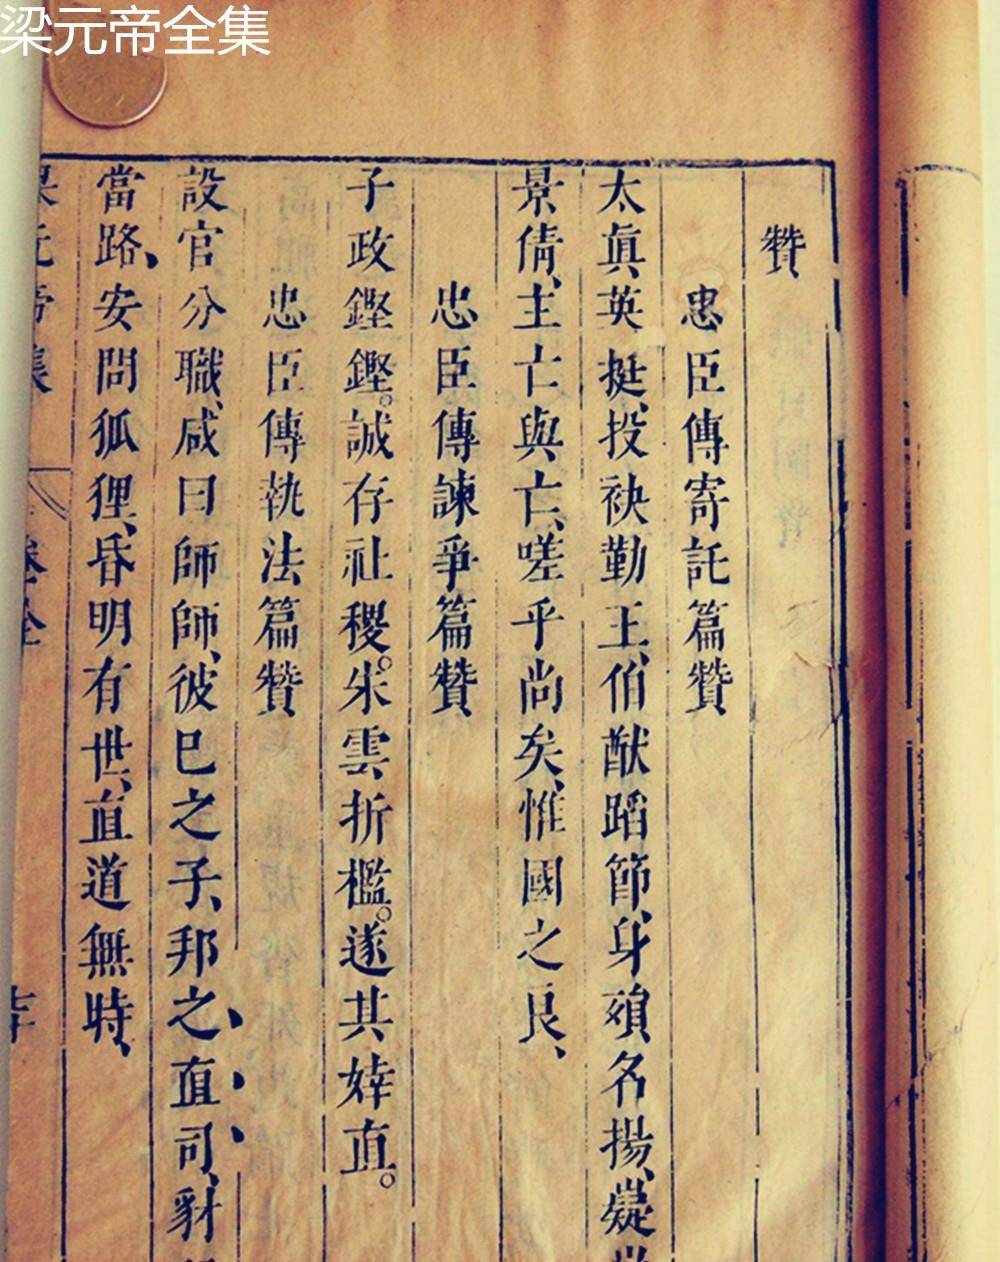 梁元帝全集
贊
忠臣傳寄託篇贊
太眞英挺、投袂勤王、伯猷蹈節、身殞名揚、嶷
景倩、主亡與亡、嗟乎尚矣、惟國之良、
忠臣傳諫爭篇贊
子政鏗鏗。誠存社稷。朱雲折檻。遂其婞直。
忠臣傳執法篇贊
設官分職、咸曰師師、彼已之子、邦之直司、豺
當路、安問狐狸、昏明有世、直道無時、
元帝集 卷全